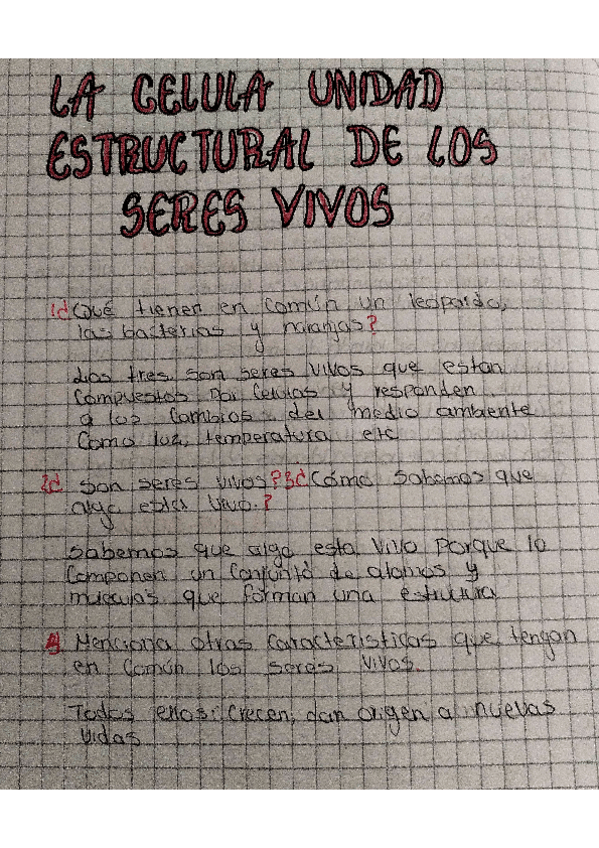 LA CELULA UNIDAD
ESTRUCTURAL DE LOS
SERES VIVOS
1¿Qué tienen en común un leopardo,
las bacterias y naranjas?
Los tres son seres vivos que estan
compuestos por celulas y responden
a los cambios del medio ambiente
como luz, temperatura etc
2¿ Son seres vivos? 3¿Cómo sabemos que
algo está vivo.?
Sabemos que algo esta vivo porque lo
componen un conjunto de atomos y
que forman una
4 Menciona otras caracteristicas que tengan
en común los seres vivos.
Todos ellos: crecen, dan origen a nuevas
vidas